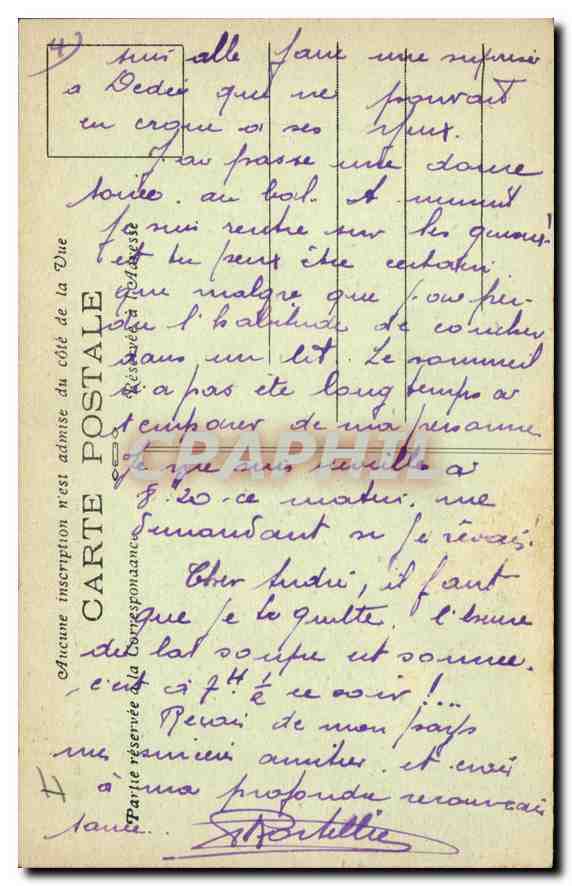 4)
suis allé faire une surprise
a Dédée que ne pouvait
en croire a ses yeux.
J'ai passé une bonne
soirée au bal. A minuit
Je suis rentré sur les
et tu peux être certain
que malgré que j'ai per-
du l'habitude de coucher
dans un lit. Le sommeil
n'a pas été long temps a
s'emparer de ma personne
Je me suis réveillé a
8.20 ce matin. me
demandant si je rêvais!
Cher André, il faut
que je te quitte. l'heure
de la soupe est sonnée.
c'est à 7H 1/2 ce soir!...
Reçois de mon pays
mes amitiés et crois
à ma profonde reconnais
sance.
Aucune inscription n'est admise du côté de la Vue
CARTE POSTALE
Partie réservée à la Correspondance
Réservée à l'Adresse
CPAPHIL